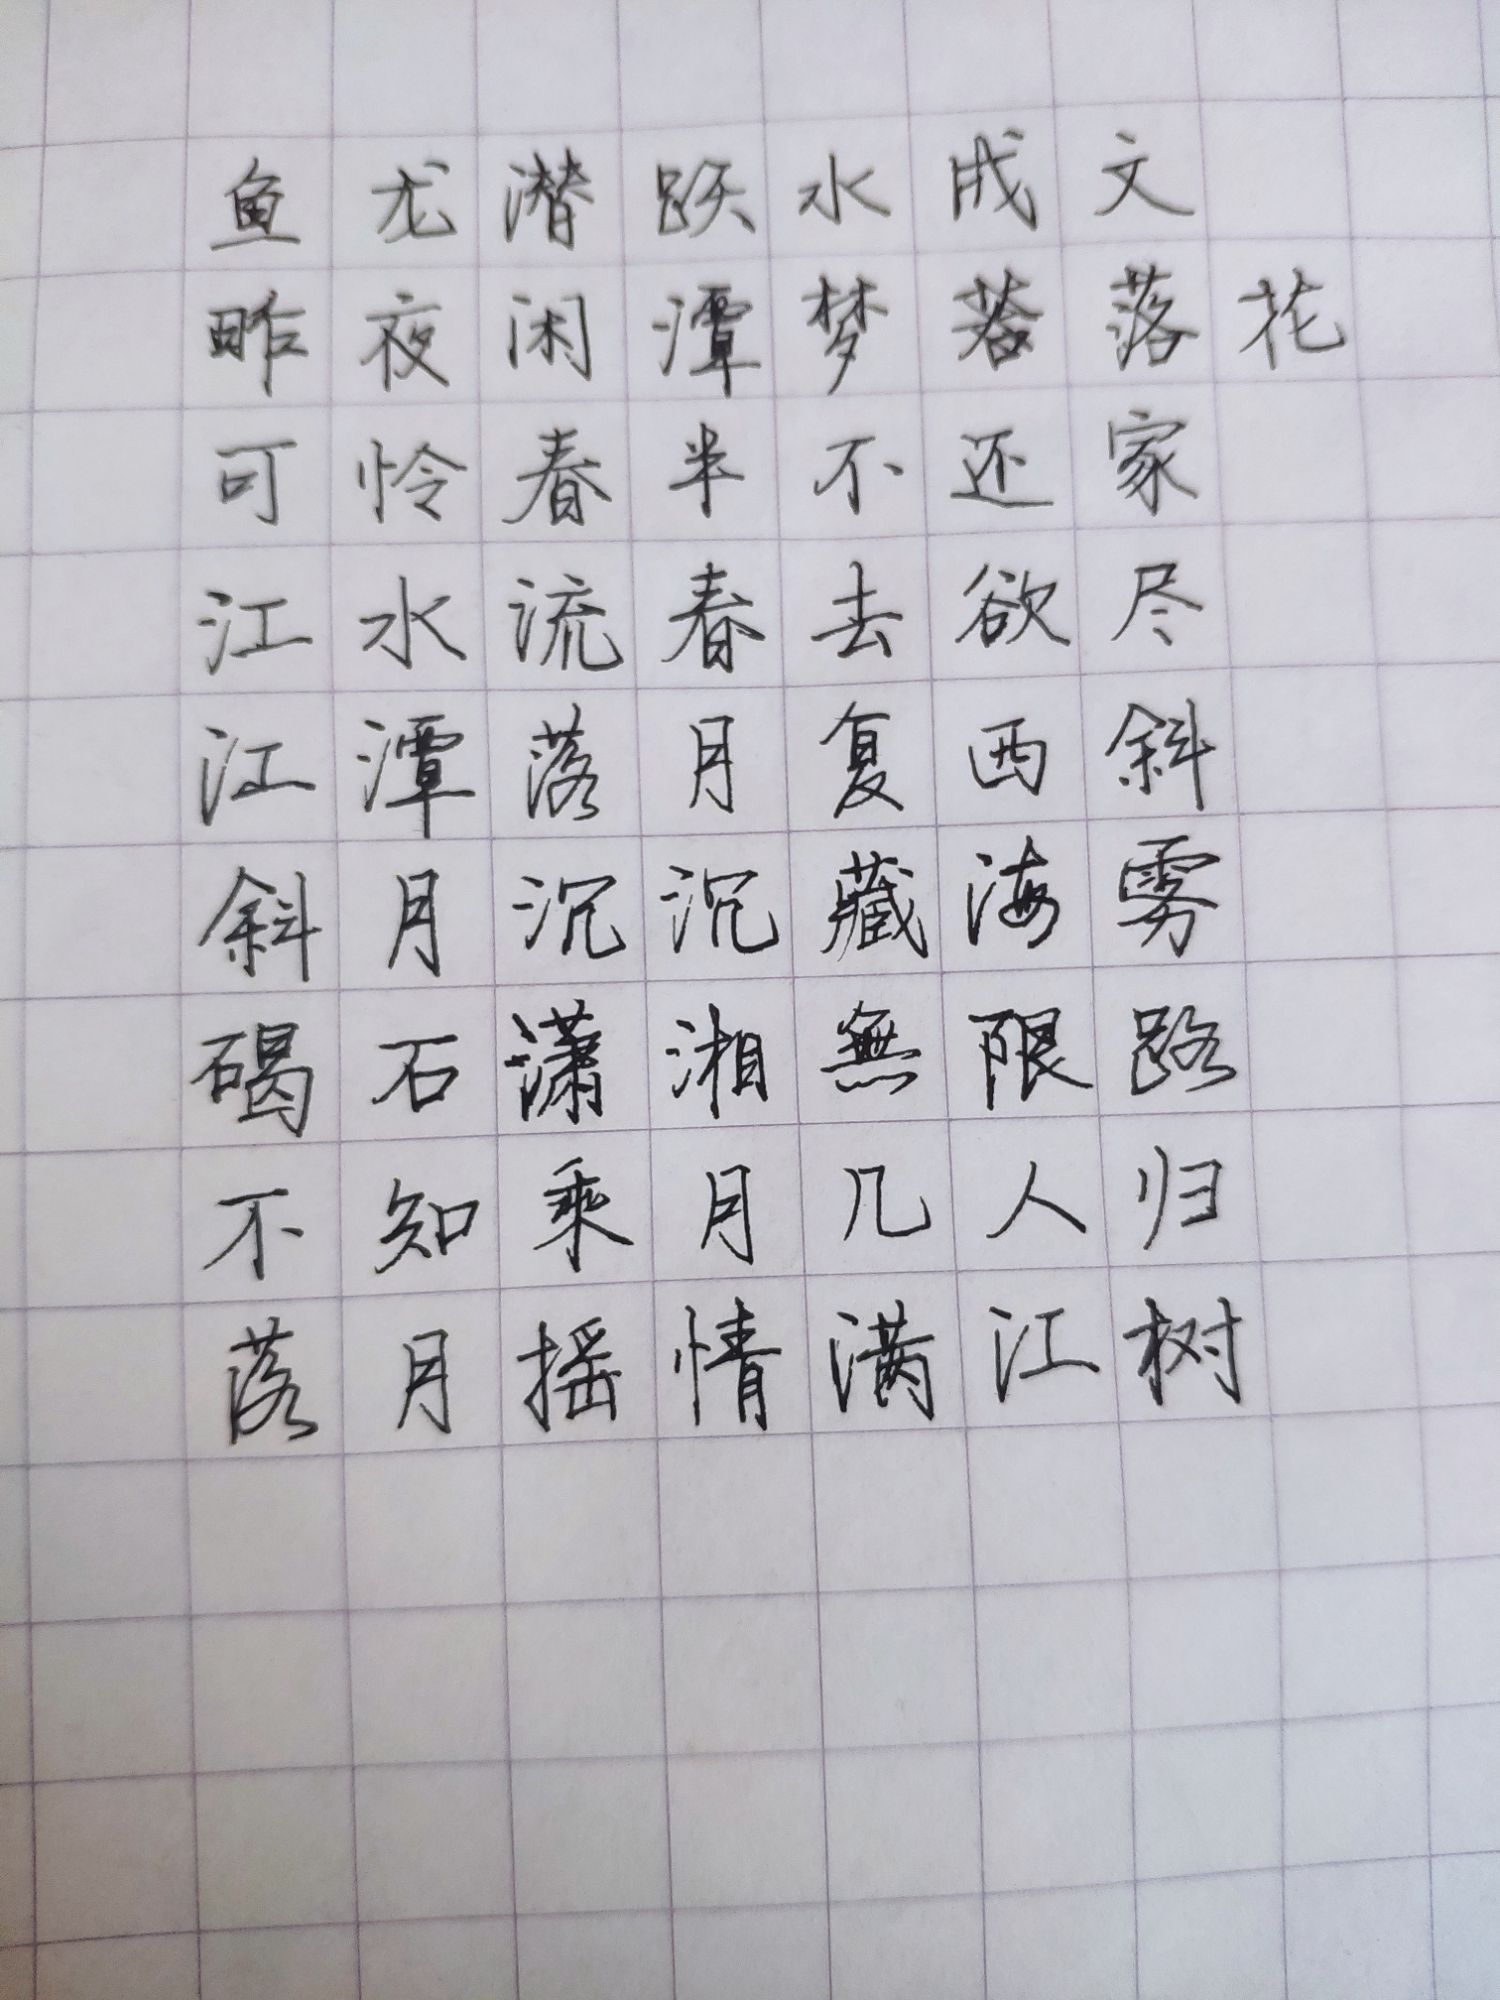 鱼龙潜跃水成文
昨夜闲潭梦落花
可怜春半不还家
江水流春去欲尽
江潭落月复西斜
斜月沉沉藏海雾
碣石潇湘無限路
不知乘月几人归
落月摇情满江树